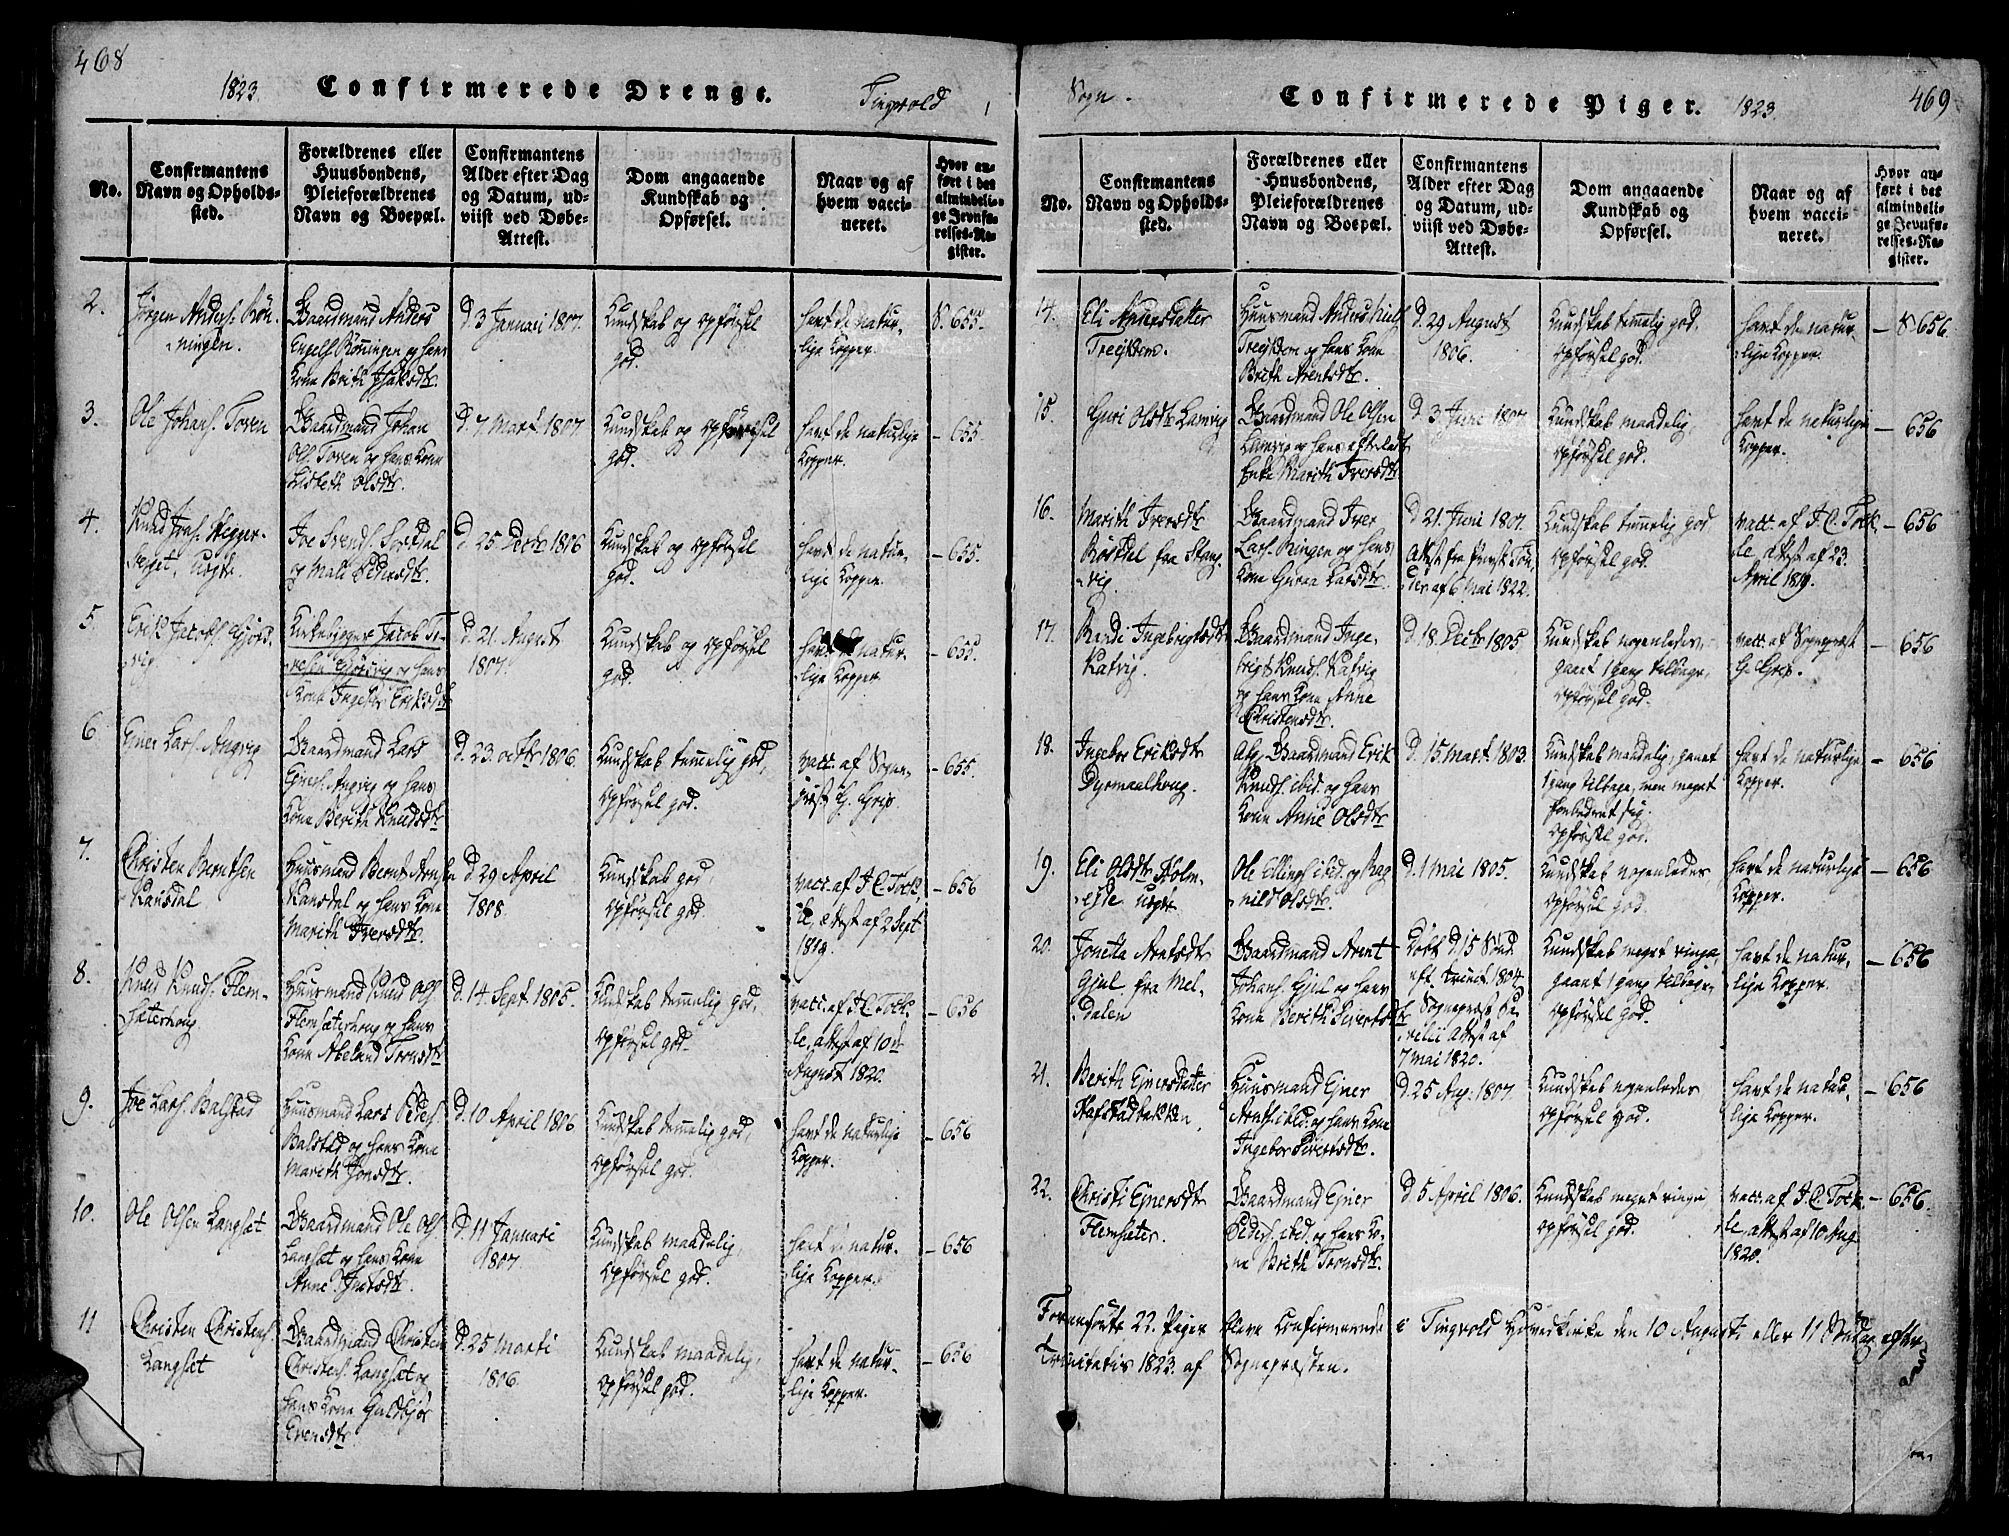 468
1823.
Confirmerede Drenge.
Tingvold
No.
Confirmantens
Navn og Opholds-
sted.
Forældrenes eller
Huusbondens,
Pleieforældrenes
Navn og Boepæl.
Confirmantens
Alder efter Dag
og Datum, ud-
viist ved Døbe-
Attest.
Dom angaaende
Kundskab og
Opførsel.
Naar og af
hvem vacci-
neret.
Hvor an-
ført i det
almindeli-
ge Jevnfø-
relses-Re-
gister.
2.
Jørgen Anders. Røn-
ningen.
Gaardmand Anders
Engels. Rønningen og hans
Kone Brith
d. 3 Januari 1807.
Kundskab og opførsel
god.
havt de natur-
lige Kopper.
S. 655.
3.
Ole Johans. Toven
Gaardmand Johan
Ols. Toven og hans Kone
Lisbeth Olsdtr.
d. 7 Mart. 1807
Kundskab og opførsel
god.
havt de naturlige
Kopper.
- 655.
4.
Knud
Joe Svends.
og Mali Pedersdtr.
d. 25 Decbr 1806
Kundskab og opførsel
god.
havt de natur-
lige Kopper.
- 655.
5.
Erik Jacobs. Gjørs-
vig
Kirkesynger Jacob
Gjørsvig og hans
Kone Ingebor Eriksdtr
d. 21. August
1807.
Kundskab og opførsel
god.
havt de natur-
lige Kopper
- 655.
6
Ejner Lars. Angvig
Gaardmand Lars
Ejners. Angvig og hans
Kone Berith Knudsdtr
d. 23. octbr 1806
Kundskab temmelig god,
opførsel god.
vacc. af Sogne-
præst G. Grip
- 655.
7.
Christen Berntsen
Ransdal
Huusmand Bernt
Ransdal og hans Kone
Marith Iversdtr.
d. 29 April
1808.
Kundskab god,
opførsel god.
vacc. af J. C. Tock-
le, attest af 2 Sept
1819.
- 656
8.
Knud Knuds. Flem-
sæterhoug
Huusmand Knud Ols.
Flemsæterhoug og hans
Kone
d. 14. Sept. 1805.
Kundskab temmelig god,
opførsel god.
vacc. af J. C. Tock-
le, attest af 10de
August 1820.
- 656
9.
Joe Lars. Balstad
Huusmand Lars Peders.
Balstad og hans Kone
Marith Jonsdtr.
d. 10 April 1806
Kundskab temmelig god,
opførsel god.
havt de naturlige
Kopper.
- 656
10.
Ole Olsen Langset
Gaardmand Ole Ols.
Langset og hans Kone
Anne
d. 11 Januari
1807
Kundskab maadelig,
opførsel god.
havt de natur-
lige Kopper.
- 656
11
Christen Christens.
Langset
Gaardmand Christen
Christens. Langset og
hans Kone Guldbjør
Evensdtr
d. 25 Marti
1806.
Kundskab maadelig,
opførsel god.
havt de natur-
lige Kopper.
- 656
Sogn.
Confirmerede Piger.
1823.
469
No.
Confirmantens
Navn og Opholds-
sted.
Forældrenes eller
Huusbondens,
Pleieforældrenes
Navn og Boepæl.
Confirmantens
Alder efter Dag
og Datum, ud-
viist ved Døbe-
Attest.
Dom angaaende
Kundskab og
Opførsel.
Naar og af
hvem vacci-
neret.
Hvor an-
ført i det
almindeli-
ge Jevnfø-
relses-Re-
gister.
14.
Eli Andersdatter
Treekrem.
Huusmand Anders
Treekrem og hans Kone
Brith Arentsdtr.
d. 29 August
1806.
Kundskab temmelig god,
opførsel god.
havt de natur-
lige Kopper.
- S. 656.
15
Guri Olsdtr Lamvig
Gaardmand Ole Olsen
Lamvig og hans efterladte
Enke Marith Iversdtr
d. 3 Juni 1807
Kundskab maadelig,
opførsel god.
havt de naturlige
Kopper.
- 656
16.
Marith Iversdtr
Røsthel fra Stang-
vig.
Gaardmand Iver
Lars. Ringen og hans
Kone Guraa Larsdtr
d. 21. Juni 1807.
Attest fra Provst Tøn-
der af 6 Mai 1822.
Kundskab temmelig god
opførsel god.
vacc. af J. C. Tock-
le, attest af 23.
April 1819.
- 656
17.
Randi Ingebrigtsdtr
Kafvig.
Gaardmand Inge-
brigt Knuds. Kafvig
og hans Kone Anne
Christensdtr.
d. 18. Decbr 1805
Kundskab nogenledes,
gaaet 1 gang tilbage,
opførsel god.
vacc. af Sognepræst
G. Grip.
- 656
18.
Ingebor Eriksdtr
Dyrmaalhoug.
Afg. Gaardmand Erik
Knuds. ibid. og hans
Kone Anne Olsdtr
d. 15. Mart. 1803.
Kundskab maadelig, gaaet
1 gang tilbage, men meget
forbedret sig.
opførsel god.
havt de naturlige
Kopper.
- 656
19.
Eli Olsdtr Holm-
eide uægte
Ole Ellings. ibid. og Rag-
nild Olsdtr.
d. 1 Mai 1805.
Kundskab nogenledes
opførsel god.
havt de naturlige
Kopper.
- 656
20.
Jonetta Arntsdtr
Gjul fra Mel-
dalen
Gaardmand Arent
Johans. Gjul og hans
Kone Berith Sivertsdtr
Døbt d. 15 Sønd.
eft. Trinit. 1804
Sognepræst
attest af
7 Mai 1820.
Kundskab meget ringe,
gaaet 1 gang tilbage,
opførsel god.
havt de natur-
lige Kopper.
- 656
21.
Berith Ejnersdatter
Hafstadbakken.
Huusmand Ejner
Arnths. ibid. og hans Kone
Ingebor Siversdtr.
d. 25 Aug. 1807.
Kundskab nogenledes
opførsel god.
havt de natur-
lige Kopper.
- 656
22.
Christi Ejnersdtr
Flemsæter.
Gaardmand Ejner
Peders. ibid. og hans Ko-
ne Brith Tronsdtr.
d. 5 April 1806.
Kundskab meget ringe
opførsel god.
vacc. af J. C. Tock-
le, attest af 10 Aug
1820.
- 656.
Foranførte 22. Piger bleve Confirmerede i Tingvold Hovedkirke den 10 August, eller 11 Søndag efter
Trinitatis 1823. af Sognepræsten.